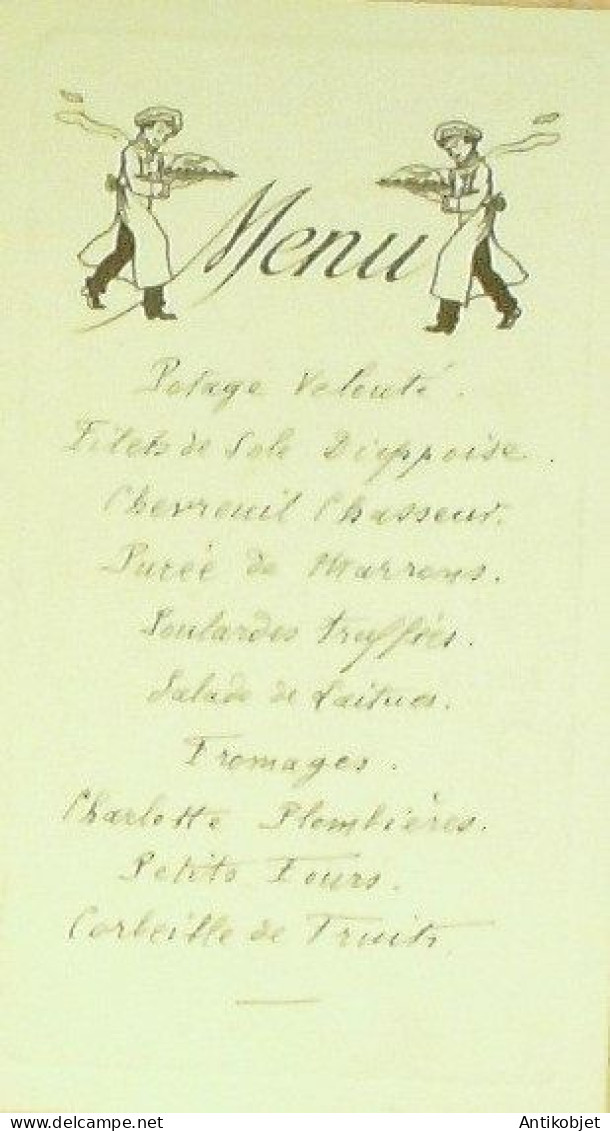 Menu
Potage Velouté.
Filets de Sole Dieppoise.
Chevreuil Chasseur.
Purée de Marrons.
Poulardes truffées.
Salade de Laitues.
Fromages.
Charlotte Plombières.
Petits Fours.
Corbeille de Fruits
Antikobjet